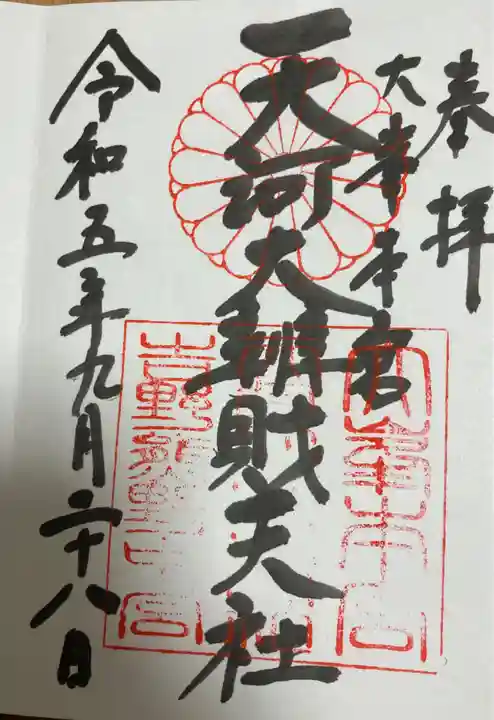 奉拝
大峯本宮
天河大辨財天社
令和五年九月二十八日